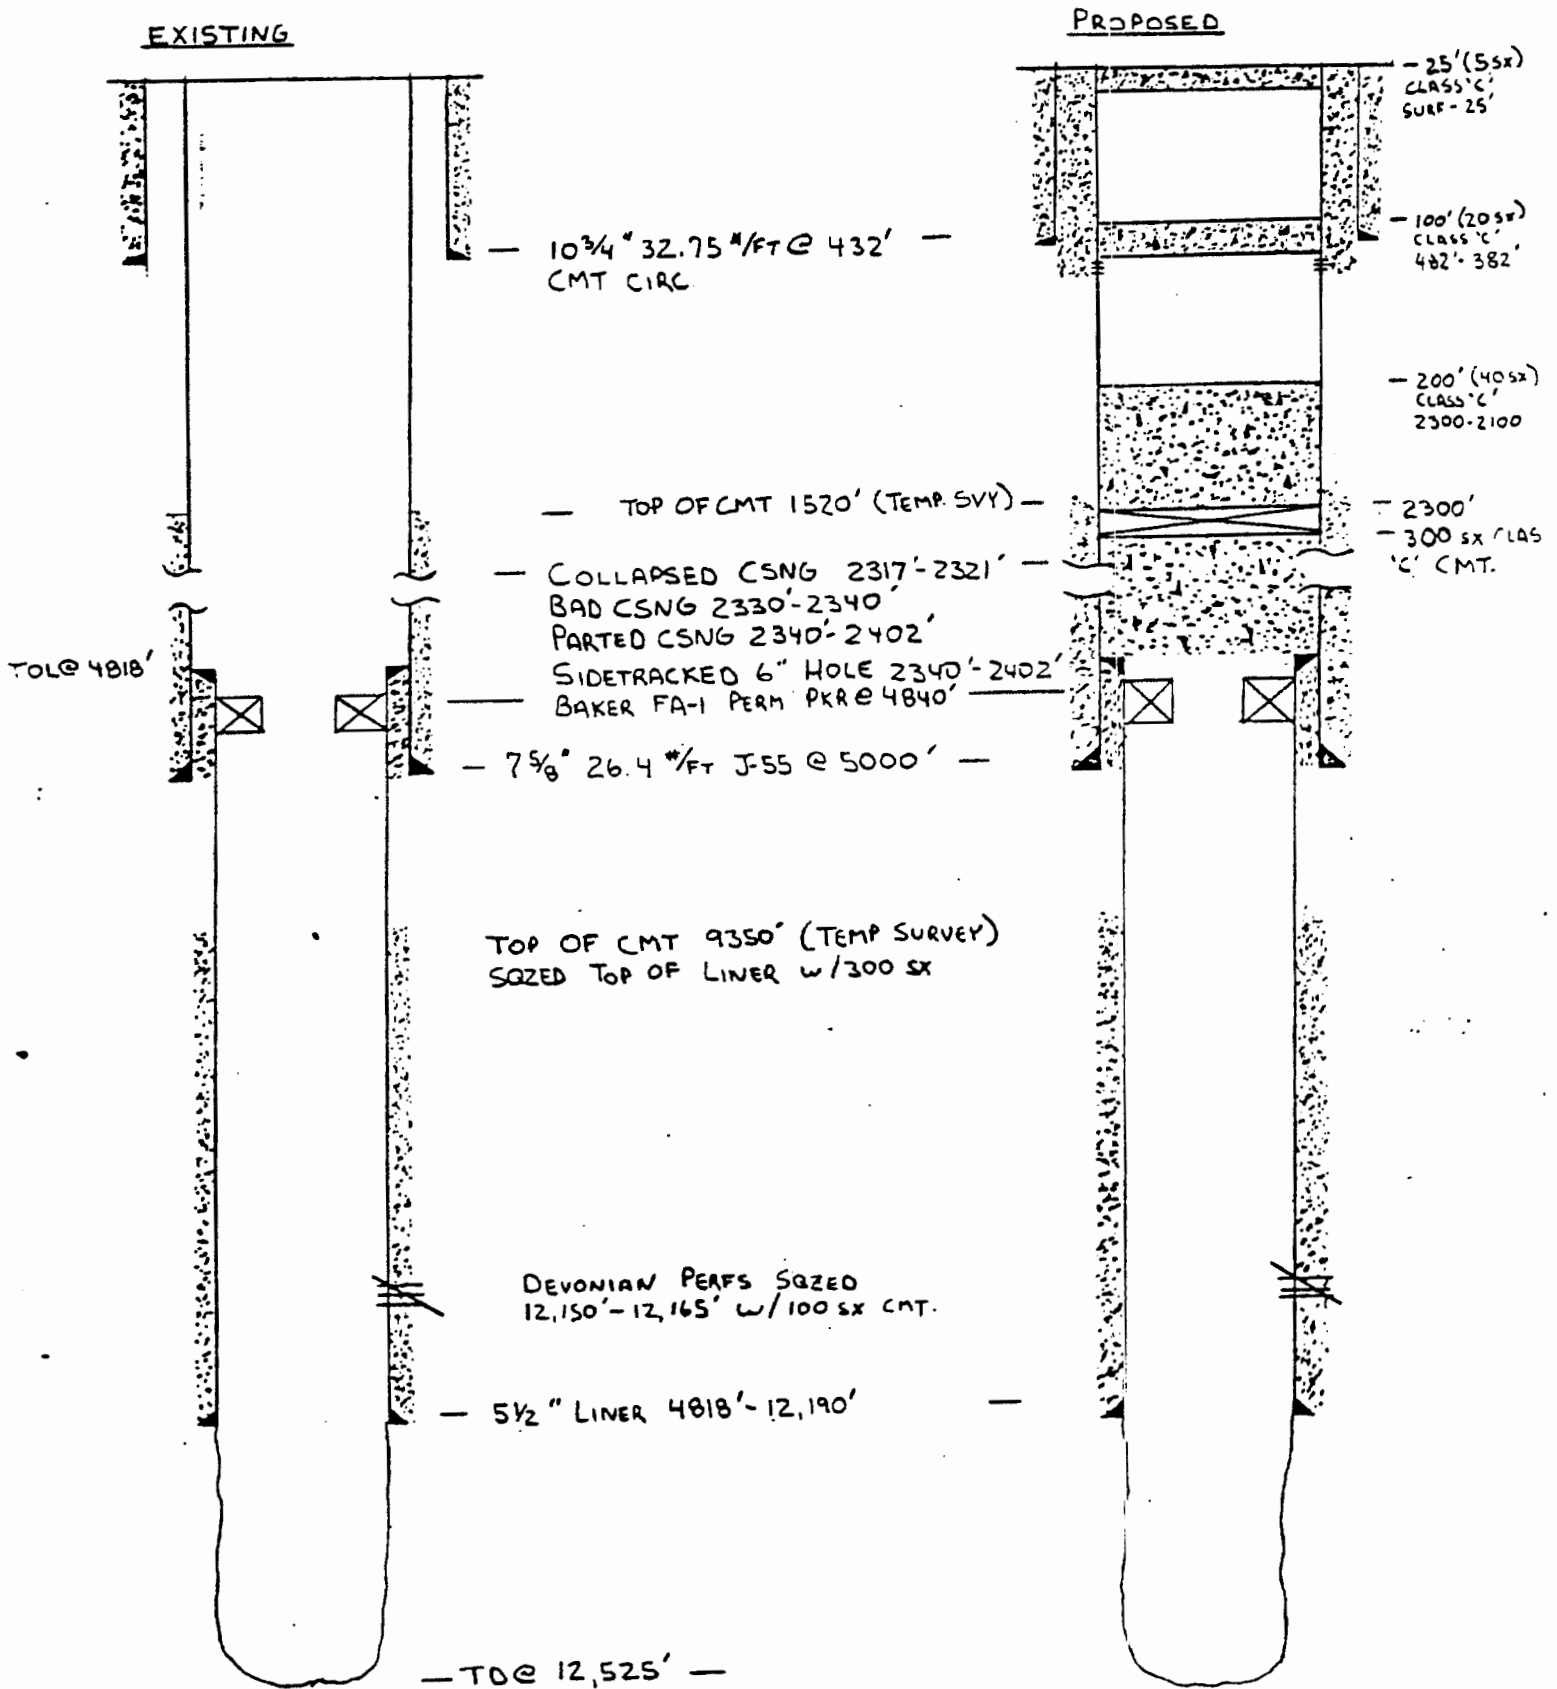 EXISTING
PROPOSED
25' (5 SX)
CLASS 'C'
SURF - 25'
10 3/4" 32.75 #/FT @ 432'
CMT CIRC
100' (20 SX)
CLASS 'C'
482' - 382'
200' (40 SX)
CLASS 'C'
2300-2100
TOP OF CMT 1520' (TEMP. SVY)
2300'
300 SX CLAS
'C' CMT.
COLLAPSED CSNG 2317'-2321'
BAD CSNG 2330'-2340'
PARTED CSNG 2340'-2402'
SIDETRACKED 6" HOLE 2340'-2402'
BAKER FA-1 PERM PKR @ 4840'
TOL @ 4818'
7 5/8" 26.4 #/FT J-55 @ 5000'
TOP OF CMT 9350' (TEMP SURVEY)
SQZED TOP OF LINER w/300 SX
DEVONIAN PERFS SQZED
12,150'-12,165' w/100 SX CMT.
5 1/2" LINER 4818'-12,190'
TD @ 12,525'